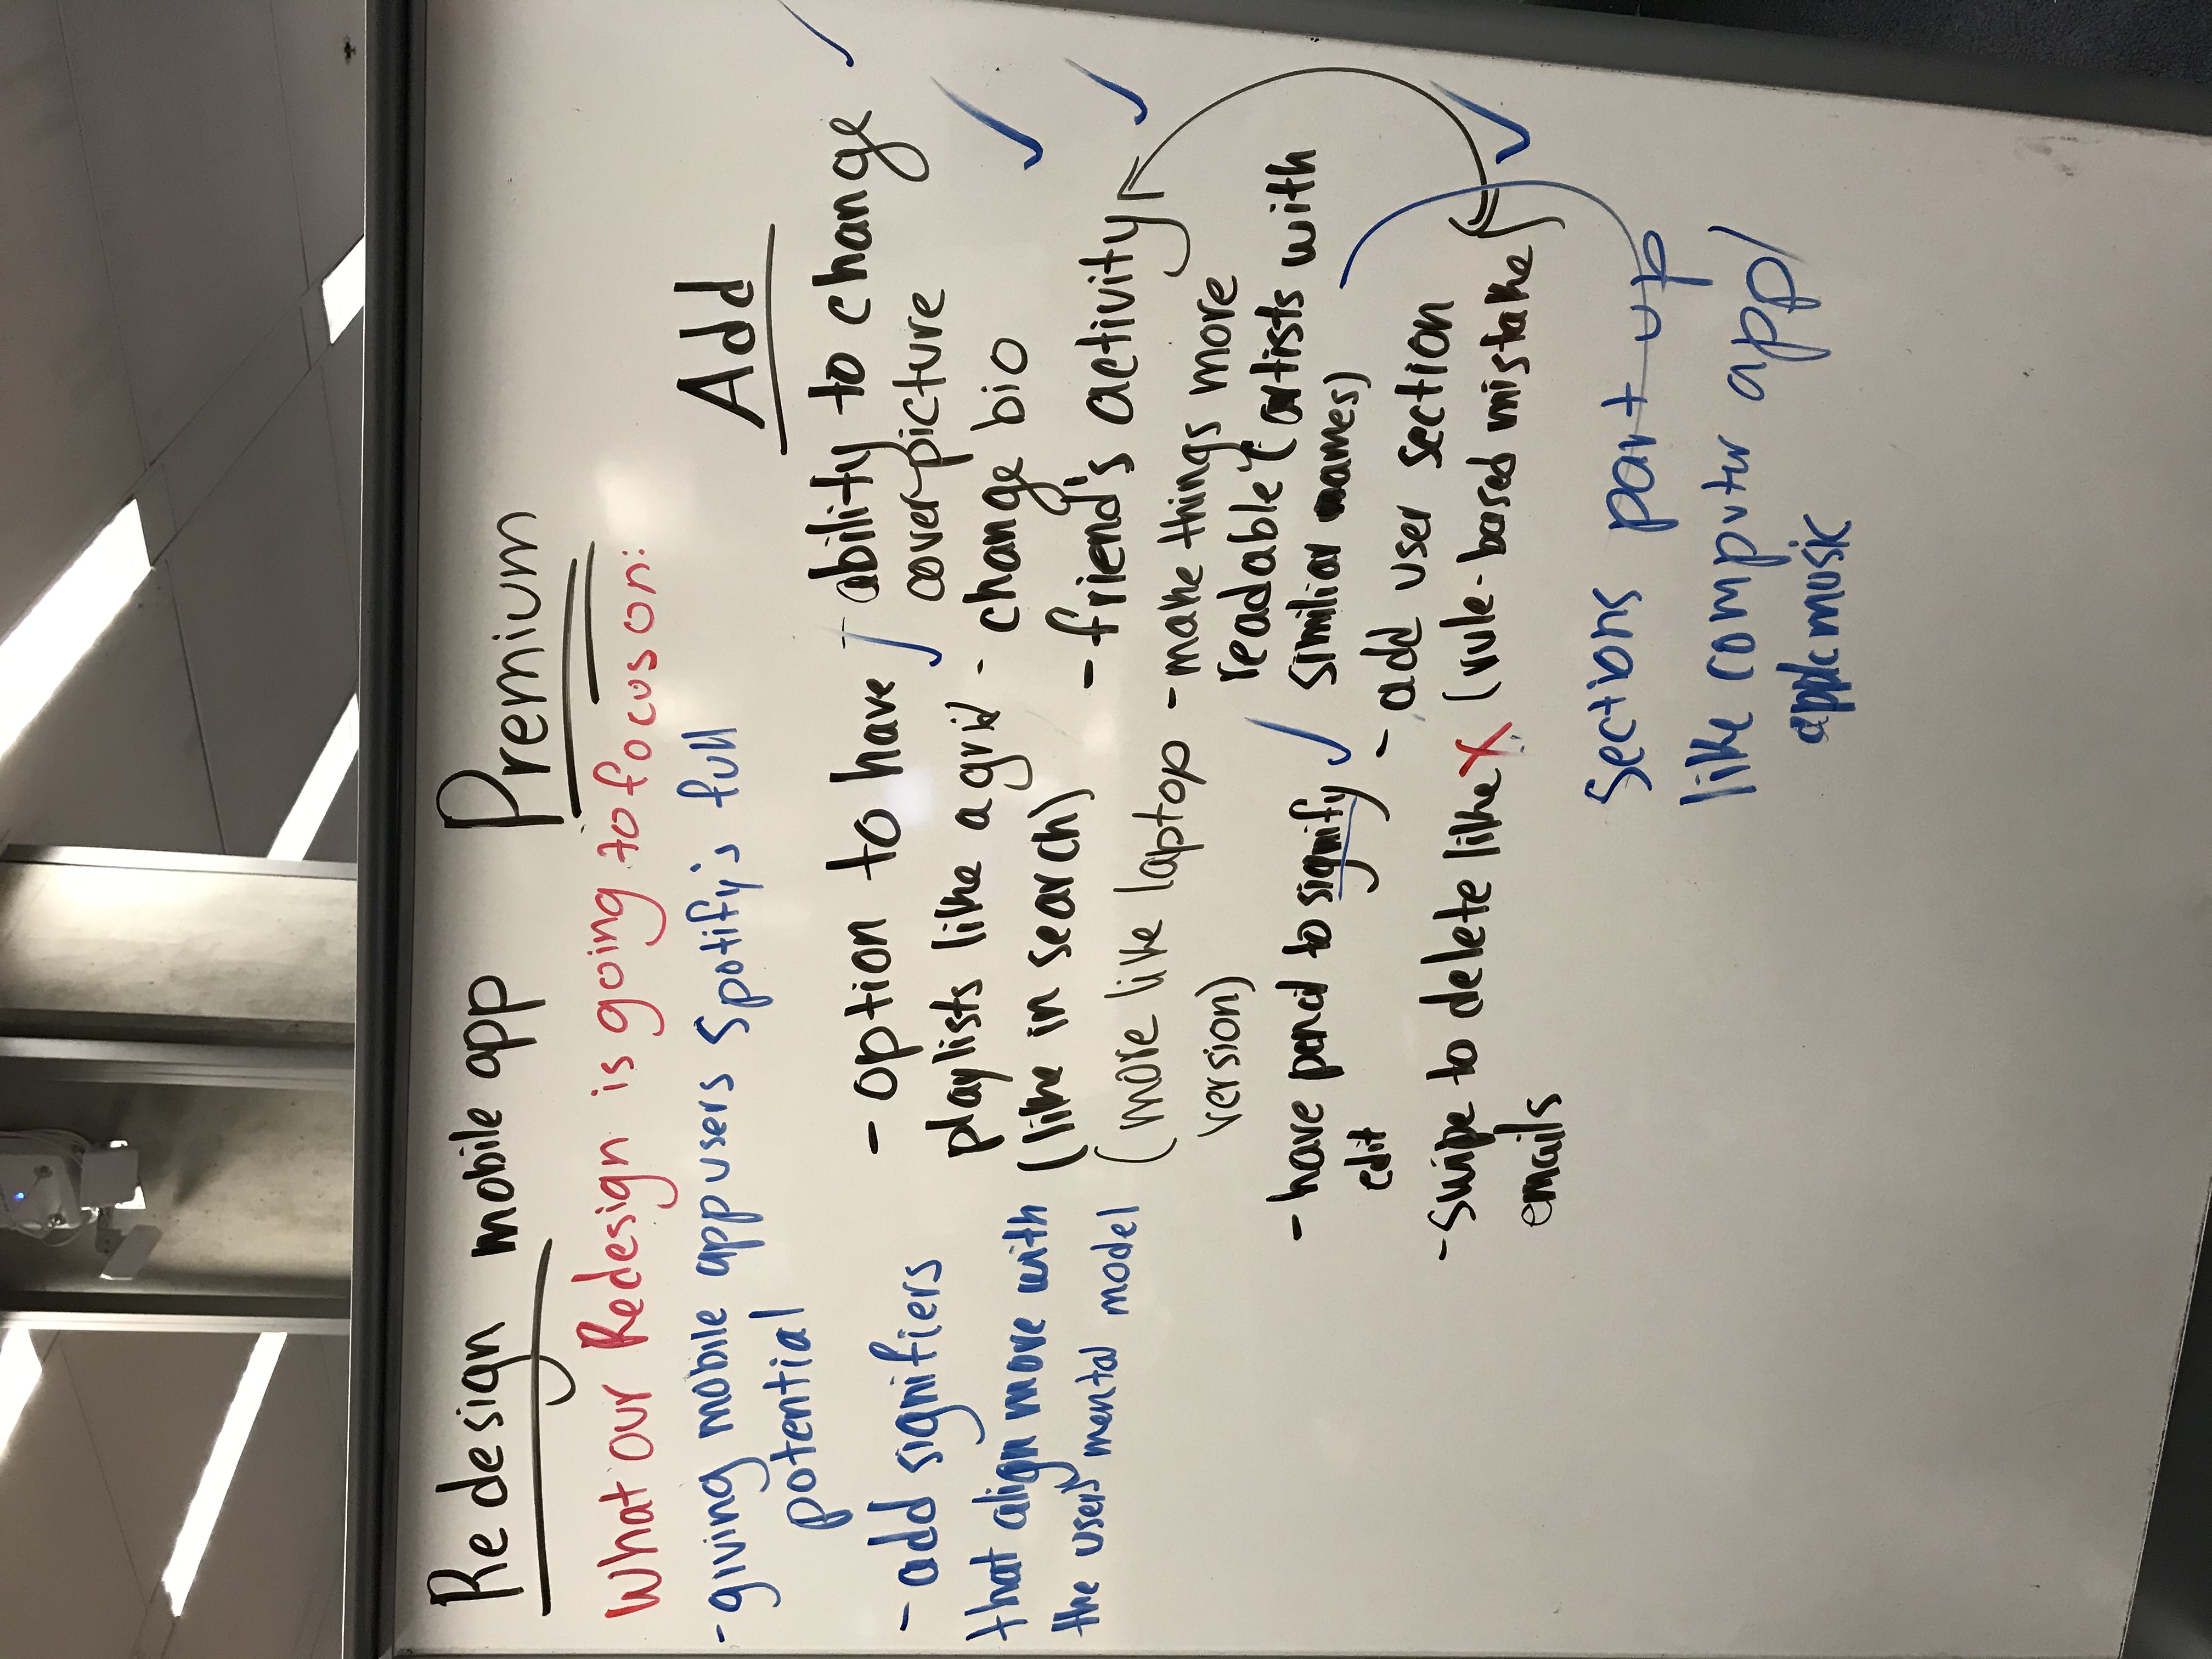 Redesign mobile app Premium
What our Redesign is going to focus on:
- giving mobile app users Spotify's full
potential
- add signifiers
that align more with
the users' mental model
- option to have
playlists like a grid
(like in search)
(more like laptop
version)
- have pencil to signify
edit
- swipe to delete like
emails
Add
- ability to change
cover picture
- change bio
- friend's activity
- make things more
readable (artists with
similiar names)
- add user section
(rule-based mistake)
Sections part up
like computer app/
apple music